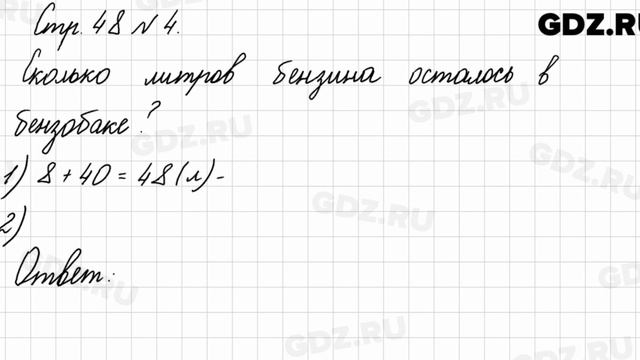 Стр. 48 № 4.
GDZ.RU
Сколько литров бензина осталось в
бензобаке?
GDZ.RU
1) 8 + 40 = 48 (л) -
GDZ.RU
GDZ.RU
2)
Ответ:
GDZ.RU
GDZ.RU
GDZ.RU